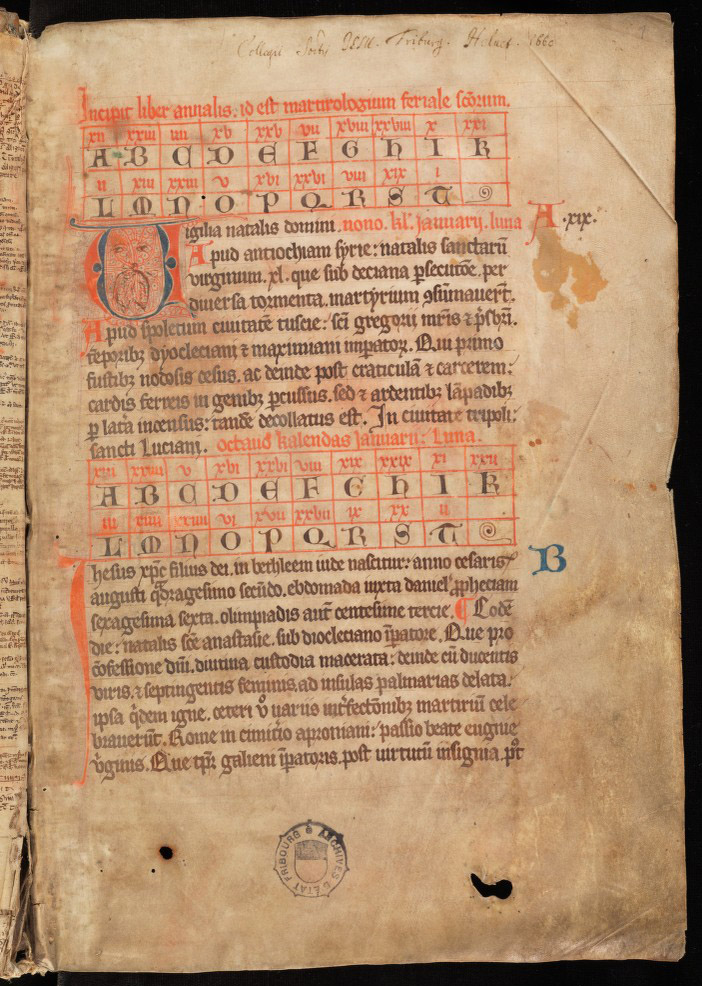 Collegii Soctis IESU. Friburg. Helvet. 1660
Incipit liber annalis. id est martirologium feriale scorum.
xii xxiii iiii xv xxv vii xviii xxviii x xxi
A B C D E F G H I K
ii xiii xxiiii v xvi xxvi viii xix i
L M N O P Q R S T
Vigilia natalis domini. nono. kl. januarij. luna A .xix.
Apud antiochiam syrie: natalis sanctarū
virginum .xl. que sub deciana psecutōe. per
diuersa tormenta. martyrium ꝯsūmauerūt.
Apud spoletum ciuitatē tuscie: sci gregorii mr̄is ⁊ p̄sbri.
tēporibꝫ dyocleciani ⁊ maximiani impatoꝝ. Qui primo
fustibꝫ nodosis cesus. ac deinde post craticulā ⁊ carcerem:
cardis ferreis in genibꝫ pcussus. sed ⁊ ardentibꝫ lāpadibꝫ
ꝑ lat̄a incensus: tandē decollatus est. In ciuitate tripoli:
sancti Luciani. octauo kalendas januarij: Luna.
xiii xxiiii v xvi xxvi viii xix xxix xi xxii
A B C D E F G H I K
iii xiiii xxiiii vi xvii xxvii ix xx ii
L M N O P Q R S T
B
Ihesus xp̄c filius dei. in bethleem iude nascitur: anno cesaris
augusti q̄dragesimo secūdo. ebdomada iuxta daniel' ꝓpheciam
sexagesima sexta. olimpiadis aūt centesime tercie. ¶ Eodē
die: natalis sc̄e anastasie. sub diocleciano īpatore. Que pro
ꝯfessione dn̄i. diutina custodia macerata: deinde cū ducentis
viris. ⁊ septingentis feminis. ad insulas palmarias delata.
ipsa q̄dem igne. ceteri v̊ uariis int̄fectōnibꝫ martiriū cele
brauerūt. Rome in cimit̄io aproniani: passio beate eugnie
v̄ginis. Que tp̄r galieni īpatoris. post uirtutū insignia. p̄t
ARCHIVES D'ETAT FRIBOURG